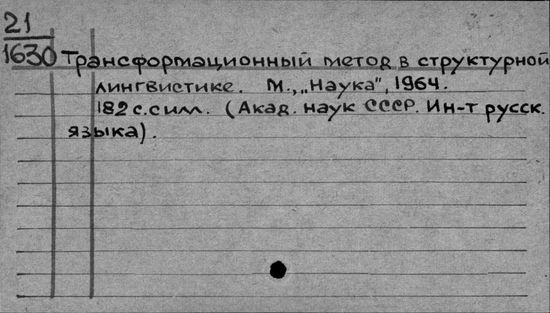 21
1630 Трансформационный метод в структурной
лингвистике. М., „Наука", 1964.
182 с. с илл. (Акад. наук СССР. Ин-т русск.
языка).